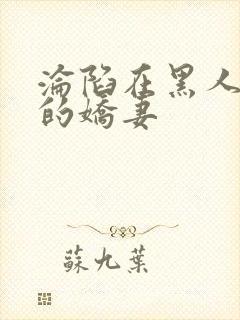 淪陷在黑人
的嬌妻
蘇九葉